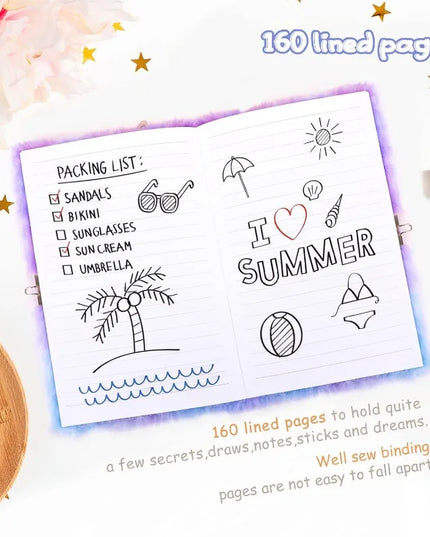 160 lined pag
PACKING LIST:
SANDALS
BIKINI
SUNGLASSES
SUN CREAM
UMBRELLA
I
SUMMER
160 lined pages to hold quite
a few secrets,draws,notes,sticks and dreams.
Well sew binding
pages are not easy to fall apart